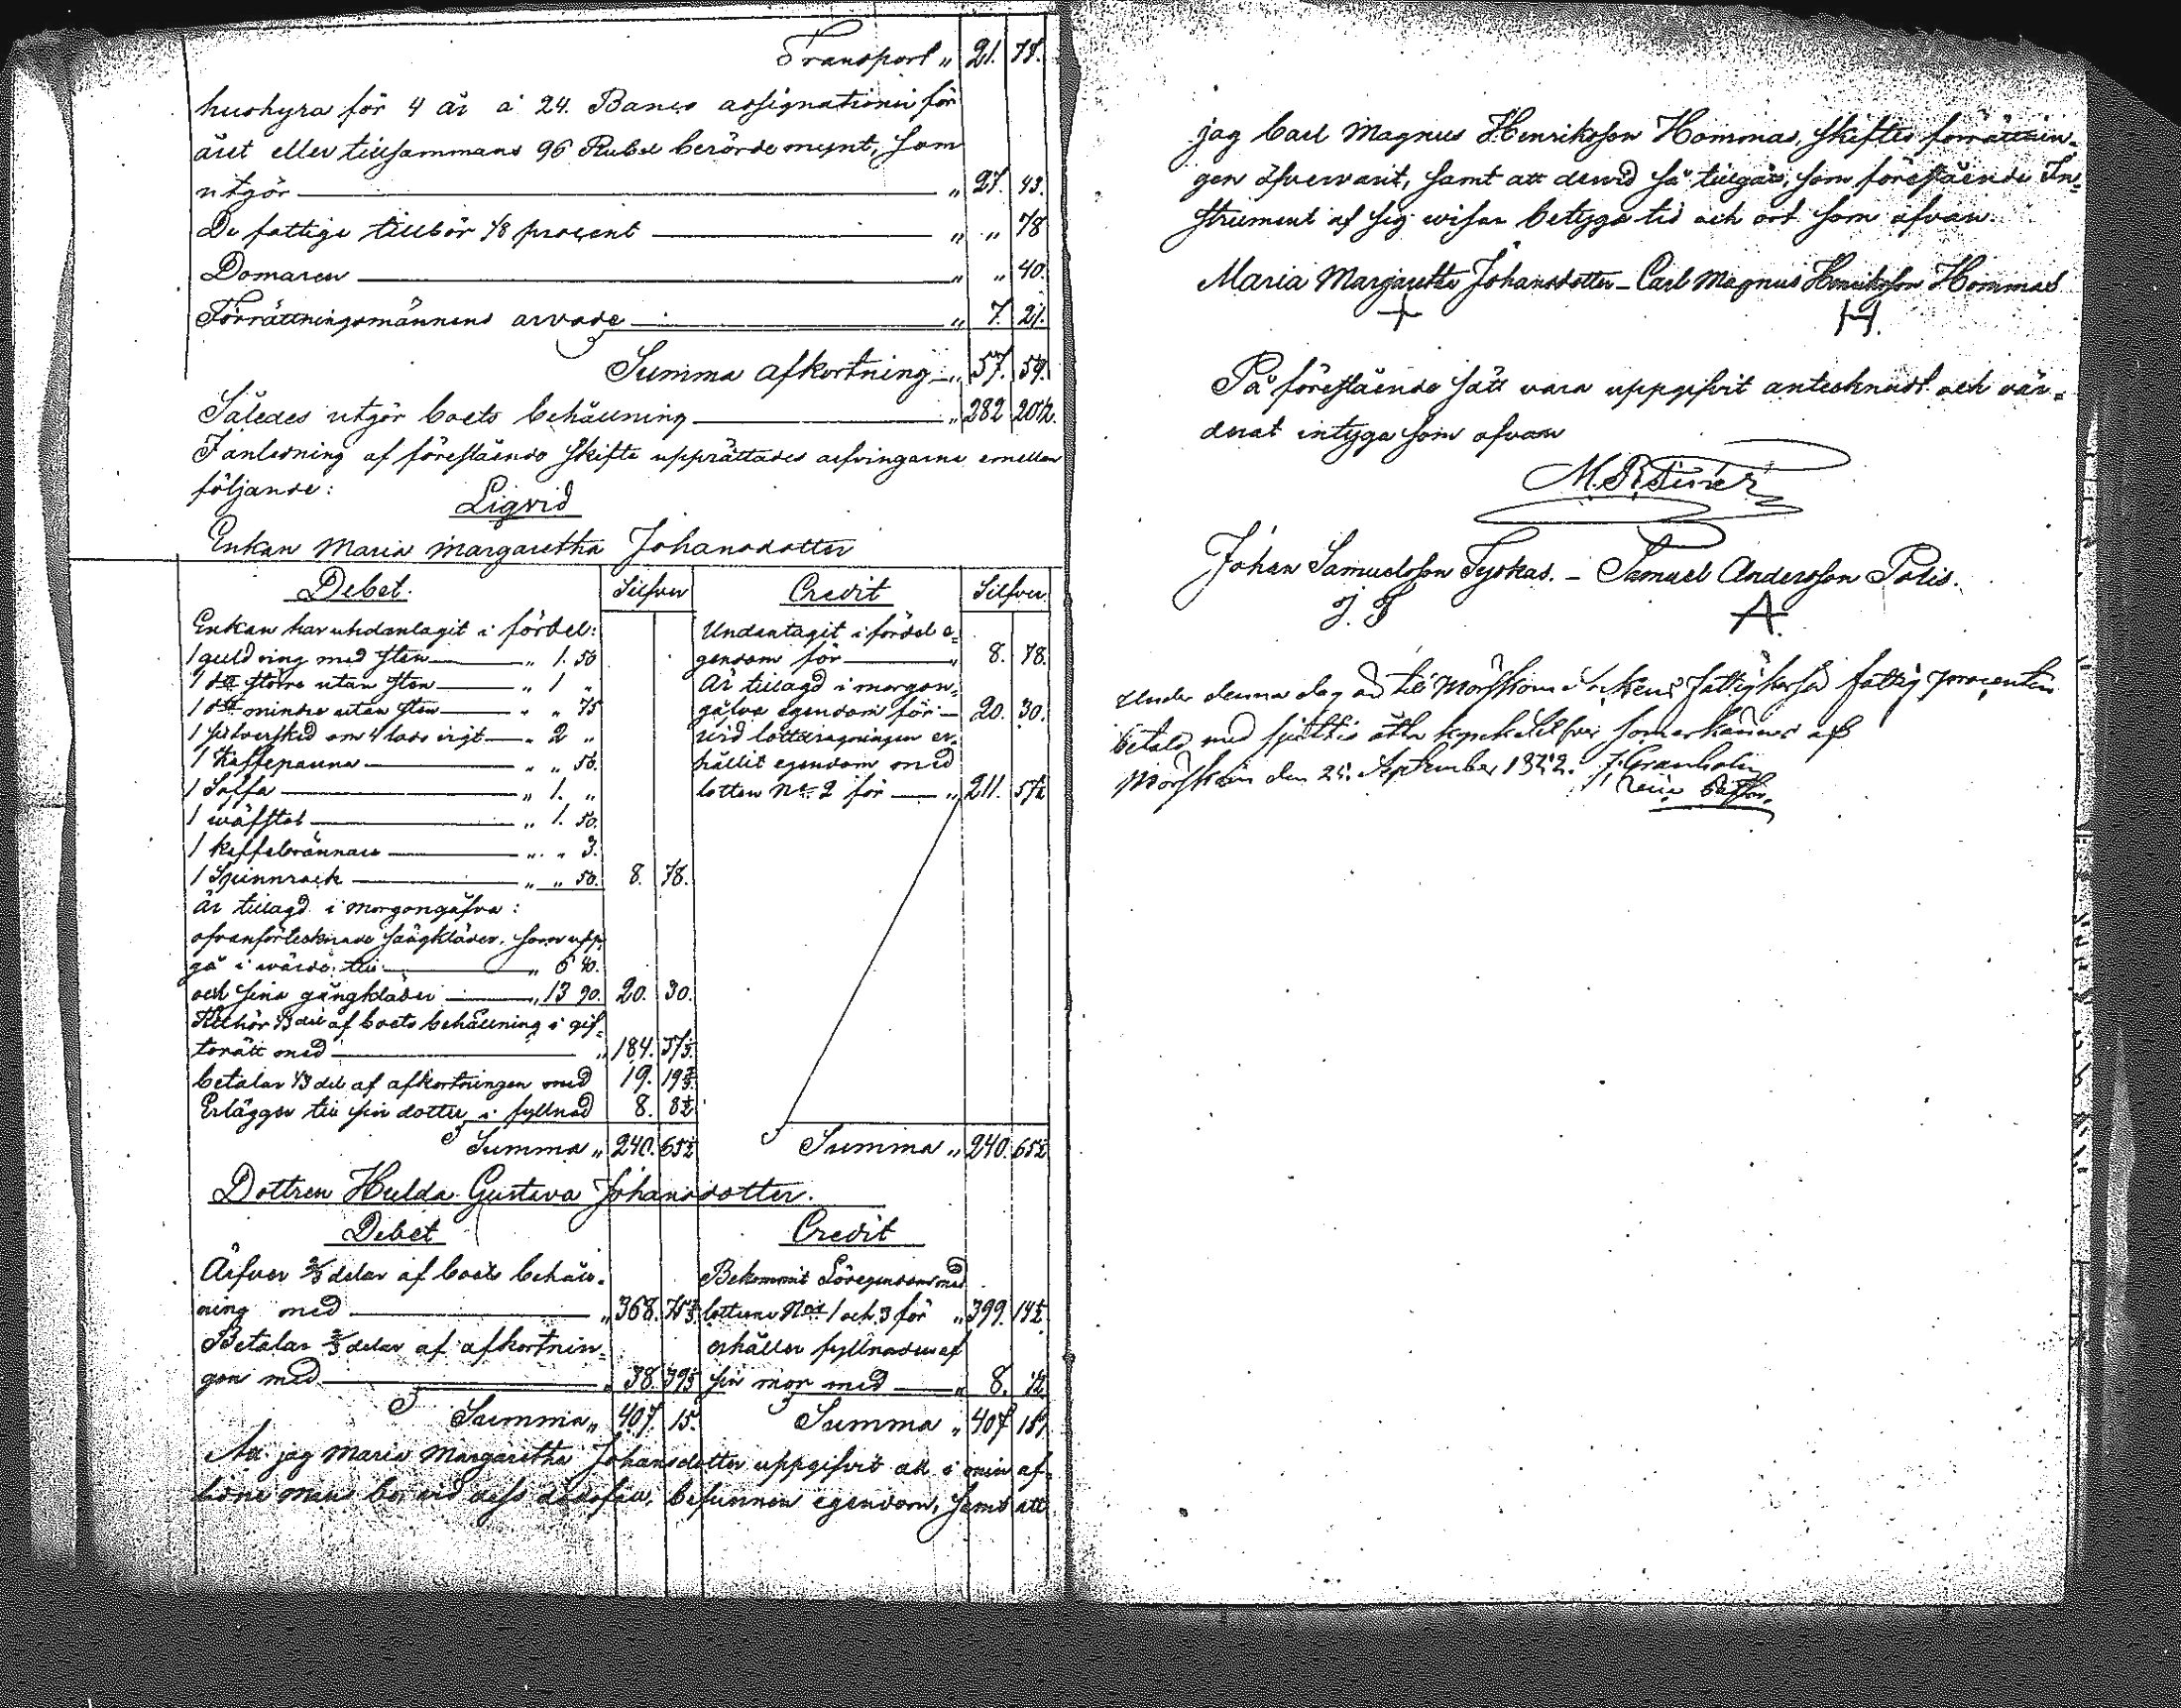 Transport " 21. 78.
hushyra för 4 år a 24. Banco assignationer för
året eller tillsammans 96 Rubel berörde mynt, som
utgör " 27. 43.
De fattige tillhör 1/8 procent " " 78
Domaren " " 40.
Förrättningsmännens arvode " 7. 21.
Summa afkortning " 57. 59.
Således utgör boets behållning " 282 20 1/2.
I anledning af förestående skifte upprättades arfvingarne emellan
följande:
Liqvid
Enkan Maria Margaretha Johansdotter
Debet. Silfver
Enkan har undantagit i fördel:
1 guld ring med sten " 1. 50
1 dto större utan sten " 1 "
1 dto mindre utan sten " " 75
1 silfversked om 4 lods vigt " 2 "
1 Kaffepanna " " 50.
1 Soffa " 1. "
1 wäfstol " 1. 50.
1 kaffebrännare " " 3.
1 Spinnrock " " 50. 8. 78.
Är tillagd i morgongåfva:
ofvanförtecknade sängkläder, som upp
gå i wärde till " 6 40.
och sina gångkläder " 13 90. 20. 30.
Tillhör 1/3 del af boets behållning i gif-
torätt med " 184. 37 1/3.
betalar 1/3 del af afkortningen med 19. 19 2/3.
Erlägger till sin dotter i fyllnad 8. 8 1/2
Summa " 240. 65 1/2
Credit Silfver.
Undantagit i fördel e-
gendom för " 8. 78.
Är tillagd i morgon-
gåfva egendom för 20. 30.
wid lottdragningen er-
hållit egendom med
lotten No 2 för " 211. 57 1/2
Summa " 240. 65 1/2
Dottren Hulda Gustava Johansdotter.
Debet
Ärfver 2/3 delar af boets behåll-
ning med " 368. 75 2/3
Betalar 2/3 delar af afkortnin-
gen med " 38. 39 1/3
Summa " 407. 15.
Credit
Bekommit Lösegendom med
lotterne Nris 1 och 3 för " 399. 14 1/2
erhåller fyllnaden af
sin mor med " 8. 1/2
Summa " 407 15.
Att jag Maria Margaretha Johansdotter uppgifvit all i min af-
lidne mans bo, vid dess dödsfall, befunnen egendom, samt att
jag Carl Magnus Henriksson Hommas, skiftes förrättnin-
gen öfvervarit, samt att dervid så tillgått, som förestående In-
strument af sig wisar betyga tid och ort som ofvan.
Maria Margaretha Johansdotter – Carl Magnus Henriksson Hommas
+ H.
På förestående sätt vara uppgifvit antecknadt och vär-
derat intyga som ofvan
Johan Samuelsson Tyskas. – Samuel Andersson Polis.
J. T A.
Under denna dag är till Mörskom Sockens fattigkassa fattig procenten
betald med sjuttio åtta kopek silfver som erkännes af
Mörskom den 25. September 18